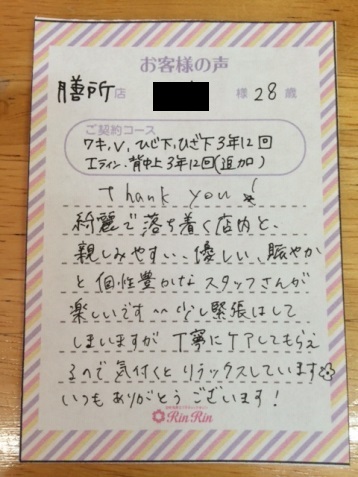 お客様の声
膳所店 様 28歳
ご契約コース
ワキ、V、ひじ下、ひざ下3年12回
Iライン、背中上3年12回(追加)
Thank you!
綺麗で落ち着く店内と、
親しみやすい、優しい、賑やか
と個性豊かなスタッフさんが
楽しいです^^少し緊張はして
しまいますが丁寧にケアしてもらえ
るので気付くとリラックスしています
いつもありがとうございます!
RinRin